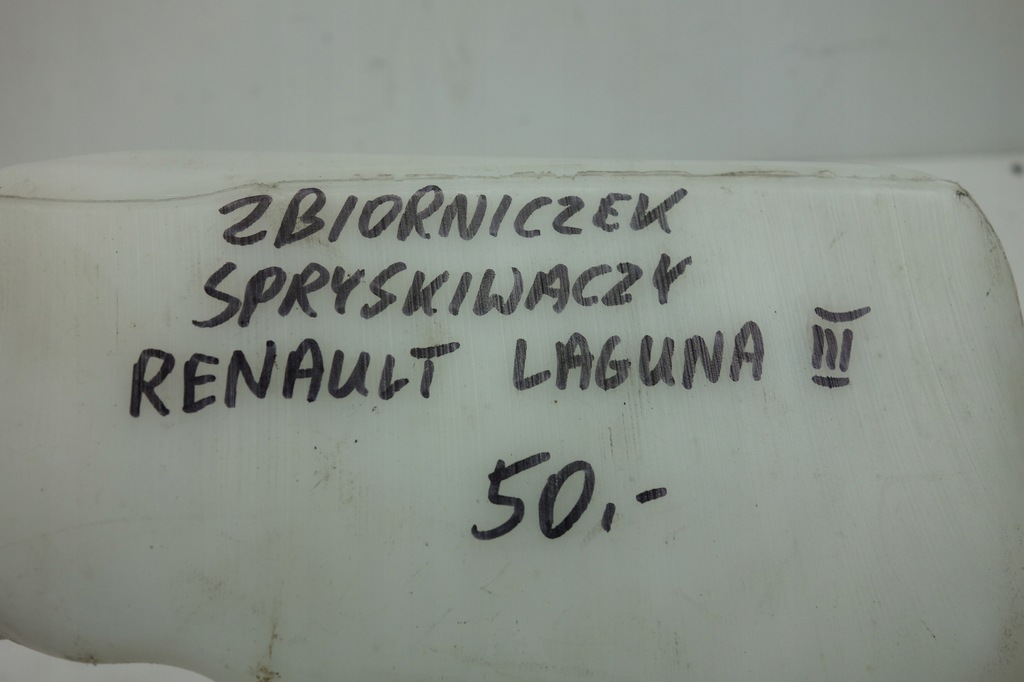 ZBIORNICZEK
SPRYSKIWACZY
RENAULT LAGUNA III
50,-